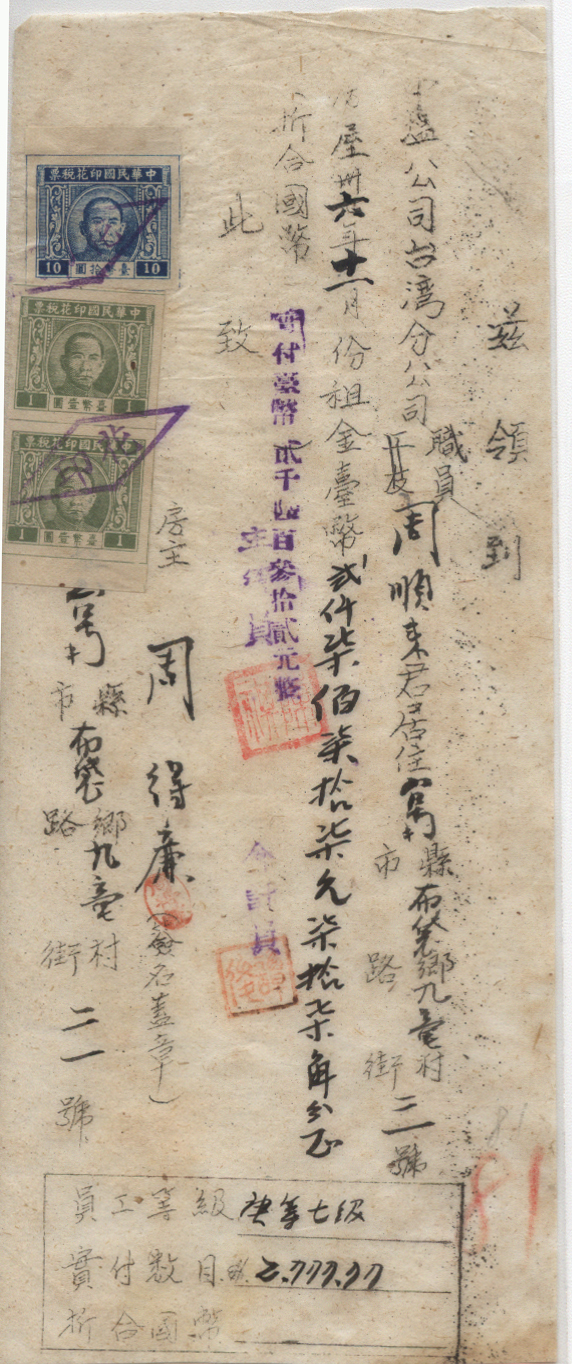 茲領到
鹽公司台灣分公司職員周順來君居住縣市布袋鄉路九村街二一號
屋卅六年十一月份租金臺幣貳仟柒佰柒拾柒元柒拾柒角分正
折合國幣
實付臺幣貳千四百參拾貳元
此致
主任
會計員
房主
周得廉(簽名蓋章)
縣市布袋鄉路九村街二一號
中華民國印花稅票
10 臺幣拾圓 10
中華民國印花稅票
1 臺幣壹圓 1
中華民國印花稅票
1 臺幣壹圓 1
員工等級 七級
實付數目 2,777.77
折合國幣
81
81